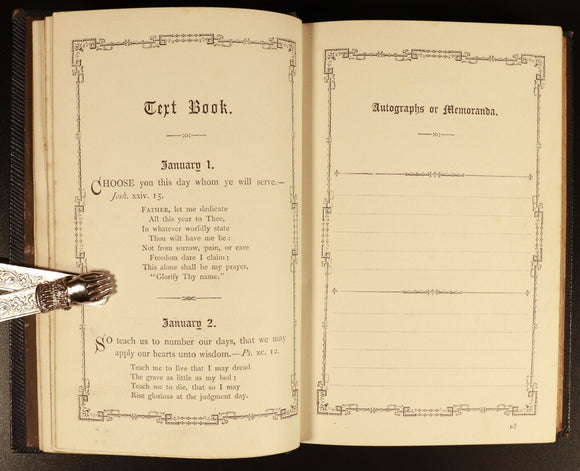 Text Book.
January 1.
CHOOSE you this day whom ye will serve.—
Josh. xxiv. 15.
FATHER, let me dedicate
All this year to Thee,
In whatever worldly state
Thou wilt have me be:
Not from sorrow, pain, or care
Freedom dare I claim;
This alone shall be my prayer,
"Glorify Thy name."
January 2.
SO teach us to number our days, that we may
apply our hearts unto wisdom.—Ps. xc. 12.
Teach me to live that I may dread
The grave as little as my bed;
Teach me to die, that so I may
Rise glorious at the judgment day.
Autographs or Memoranda.
B2